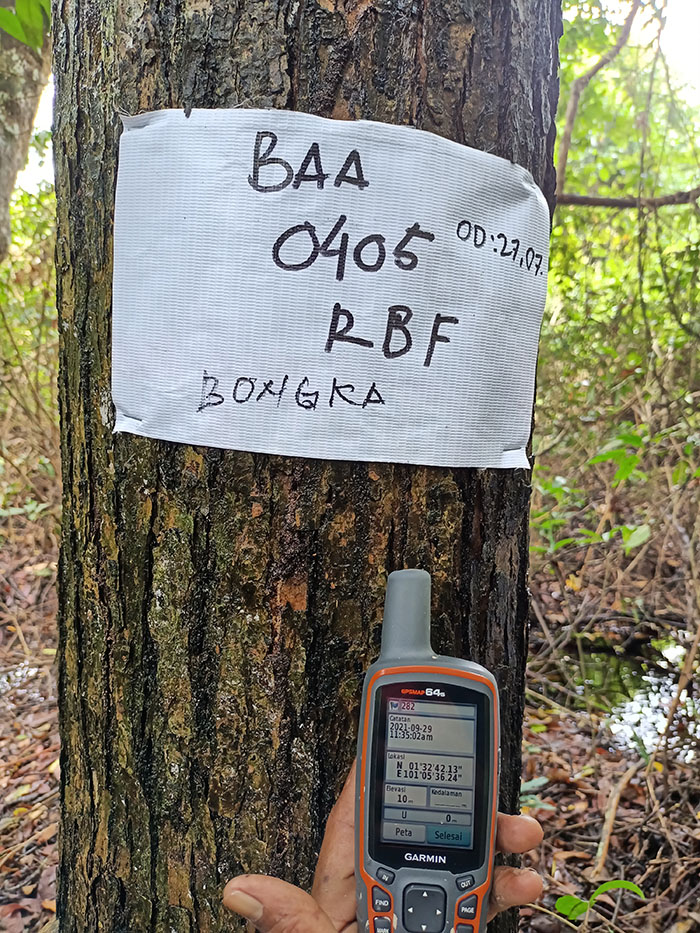 BAA
0405
OD:27,07.
RBF
BONGKA
GPSMAP 64s
282
Catatan
2021-09-29
11:35:02am
Lokasi
N 01°32'42.13"
E 101°05'36.24"
Elevasi
Kedalaman
10 m
U
0m
Peta
Selesai
GARMIN
IN
OUT
FIND
PAGE
MARK